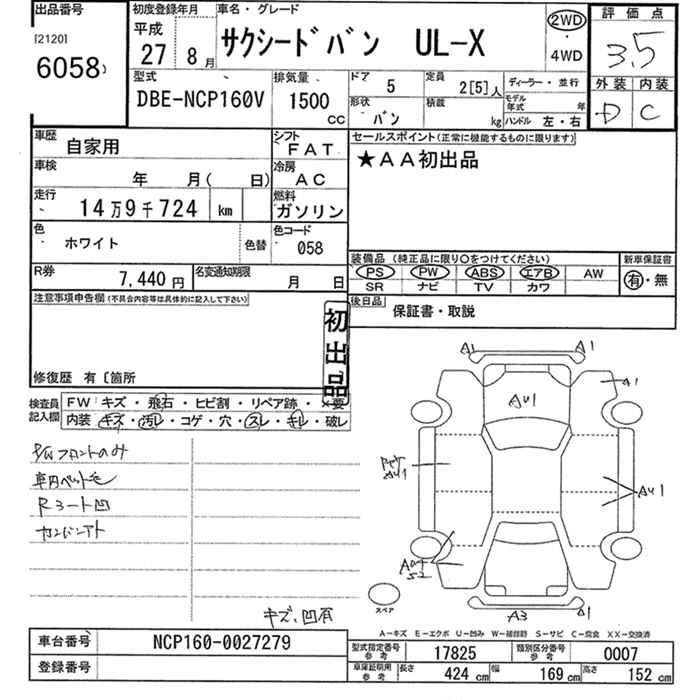 出品番号
[2120]
6058
初度登録年月
平成
27 8月
車名・グレード
サクシードバン UL-X
2WD
・
4WD
評価点
3.5
外装 内装
D C
型式
DBE-NCP160V
排気量
1500
cc
ドア
5
定員
2[5]人
ディーラー・並行
形状
バン
積載
kg
モデル年式
年
ハンドル 左・右
車歴
自家用
シフト
FAT
車検
年 月( 日)
冷房
AC
走行
14万9千724 km
燃料
ガソリン
色
ホワイト
色替
色コード
058
R券
7,440円
名変通知期限
月 日
セールスポイント(正常に機能するものに限ります)
★AA初出品
装備品 (純正品に限り○をつけてください)
PS PW ABS エアB AW
SR ナビ TV カワ
新車保証書
有・無
後日品
保証書・取説
注意事項申告欄(不具合内容等は具体的に記入して下さい)
初出品
修復歴 有〔箇所
検査員記入欄
FW キズ・飛石・ヒビ割・リペア跡・×要
内装 キズ・汚レ・コゲ・穴・スレ・キレ・破レ
P/Wフロントのみ
Rシート凹
キズ、凹有
A1 A1
AU1
A1
AU1
AU1
A3
A1
スペア
A-キズ E-エクボ U-凹み W-補修跡 S-サビ C-腐食 XX-交換済
車台番号
NCP160-0027279
登録番号
型式指定番号 参考
17825
類別区分番号 参考
0007
車庫証明用 参考
長さ
424 cm
幅
169 cm
高さ
152 cm